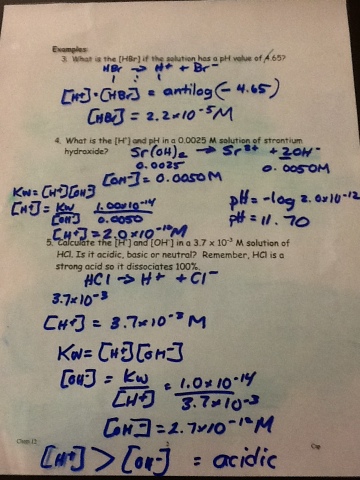 Examples:
3. What is the [HBr] if the solution has a pH value of 4.65?
HBr → H⁺ + Br⁻
[H⁺]=[HBr] = antilog(- 4.65)
[HBr] = 2.2 x 10⁻⁵ M
4. What is the [H⁺] and pH in a 0.0025 M solution of strontium
hydroxide? Sr(OH)₂ → Sr²⁺ + 2OH⁻
0.0025 0.0050M
[OH⁻] = 0.0050M
KW=[H⁺][OH⁻]
[H⁺] = KW/[OH⁻] 1.00x10⁻¹⁴/0.0050 pH = -log 2.0x10⁻¹²
[H⁺] = 2.0x10⁻¹²M pH = 11.70
5. Calculate the [H⁺] and [OH⁻] in a 3.7 x 10⁻³ M solution of
HCl. Is it acidic, basic or neutral? Remember, HCl is a
strong acid so it dissociates 100%.
HCl → H⁺ + Cl⁻
3.7x10⁻³
[H⁺] = 3.7x10⁻³ M
KW= [H⁺][OH⁻]
[OH⁻] = KW/[H⁺] = 1.0x10⁻¹⁴/3.7x10⁻³
[OH⁻] = 2.7x10⁻¹²M
Chem 12
[H⁺] > [OH⁻] = acidic